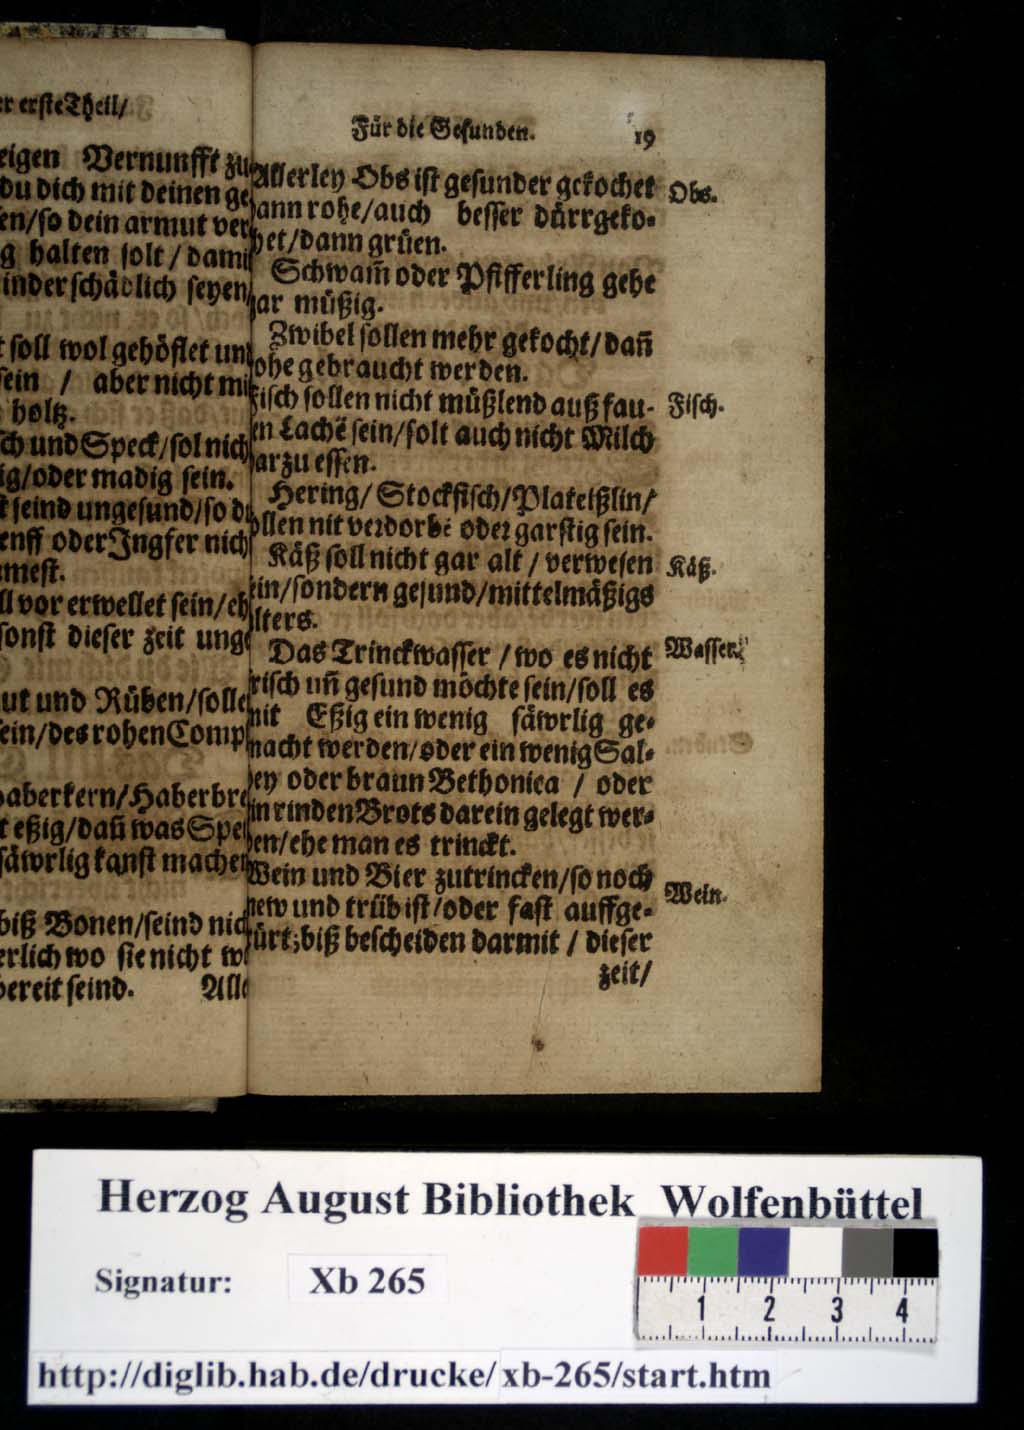 er erste Theil/
eigen Vernunfft zu
du dich mit deinen ge
en/so dein armut ver
g halten solt/dami
inder schädlich seyen/
t soll wol gehöflet un
sein / aber nicht mi
holtz.
sch und Speck/sol nich
ig/oder madig sein.
t seind ungesund/so d
enff oder Ingfer nich
mest.
ll vor erwellet sein/eh
sonst dieser zeit unge
ut und Rüben/solle
ein/des rohen Comp
haberkern/Haberbre
t eßig/dañ was Spei
säwrlig kanst machen
biß Bonen/seind nich
erlich wo sie nicht w
bereit seind. Alle
Für die Gesunden. 19
Allerley Obs ist gesunder gekochet Obs.
dann rohe/auch besser dürrgeko-
het/dann grüen.
Schwam̃ oder Pfifferling gehe
gar müßig.
Zwibel sollen mehr gekocht/dañ
rohe gebraucht werden.
Fisch sollen nicht müßlend auß fau- Fisch.
en Lachẽ sein/solt auch nicht Milch
darzu essen.
Hering/Stockfisch/Plateißlin/
sollen nit verdorbẽ oder garstig sein.
Käß soll nicht gar alt / verwesen Käß.
sein/sondern gesund/mittelmäßigs
alters.
Das Trinckwasser / wo es nicht Wasser.
frisch uñ gesund möchte sein/soll es
mit Eßig ein wenig säwrlig ge-
macht werden/oder ein wenig Sal-
bey oder braun Bethonica / oder
ein rinden Brots darein gelegt wer-
den/ehe man es trinckt.
Wein und Bier zutrincken/so noch Wein.
new und trüb ist/oder fast auffge-
rürt;biß bescheiden darmit / dieser
zeit/
Herzog August Bibliothek Wolfenbüttel
Signatur: Xb 265
1 2 3 4
http://diglib.hab.de/drucke/xb-265/start.htm